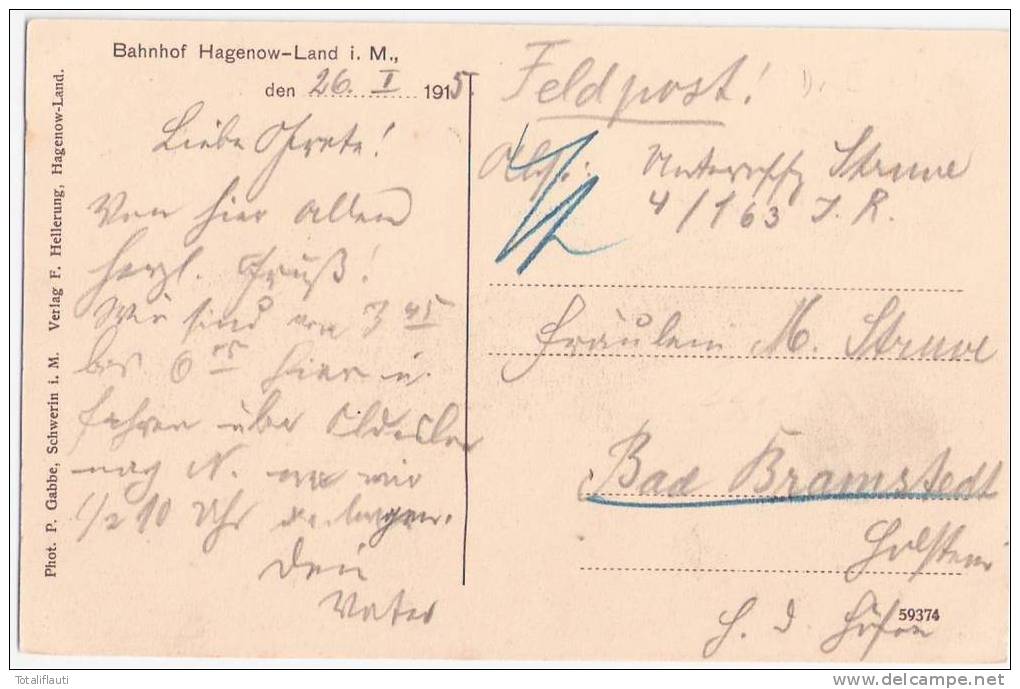 Bahnhof Hagenow-Land i. M.,
den 26. I 1915.
Liebe Grete!
Von hier allen
herzl. Gruß!
Wir sind von 3 45
bis 6 hier u.
fahren über Oldesloe
nach N. wo wir
1/2 10 Uhr anlangen.
Dein
Vater
Phot. P. Gabbe, Schwerin i. M. Verlag F. Hellerung, Hagenow-Land.
Feldpost!
Abs.: Unteroffz Struve
4/163 I. R.
Fräulein M. Struve
Bad Bramstedt
Holstein
59374
Totaliflauti
delcampe.net